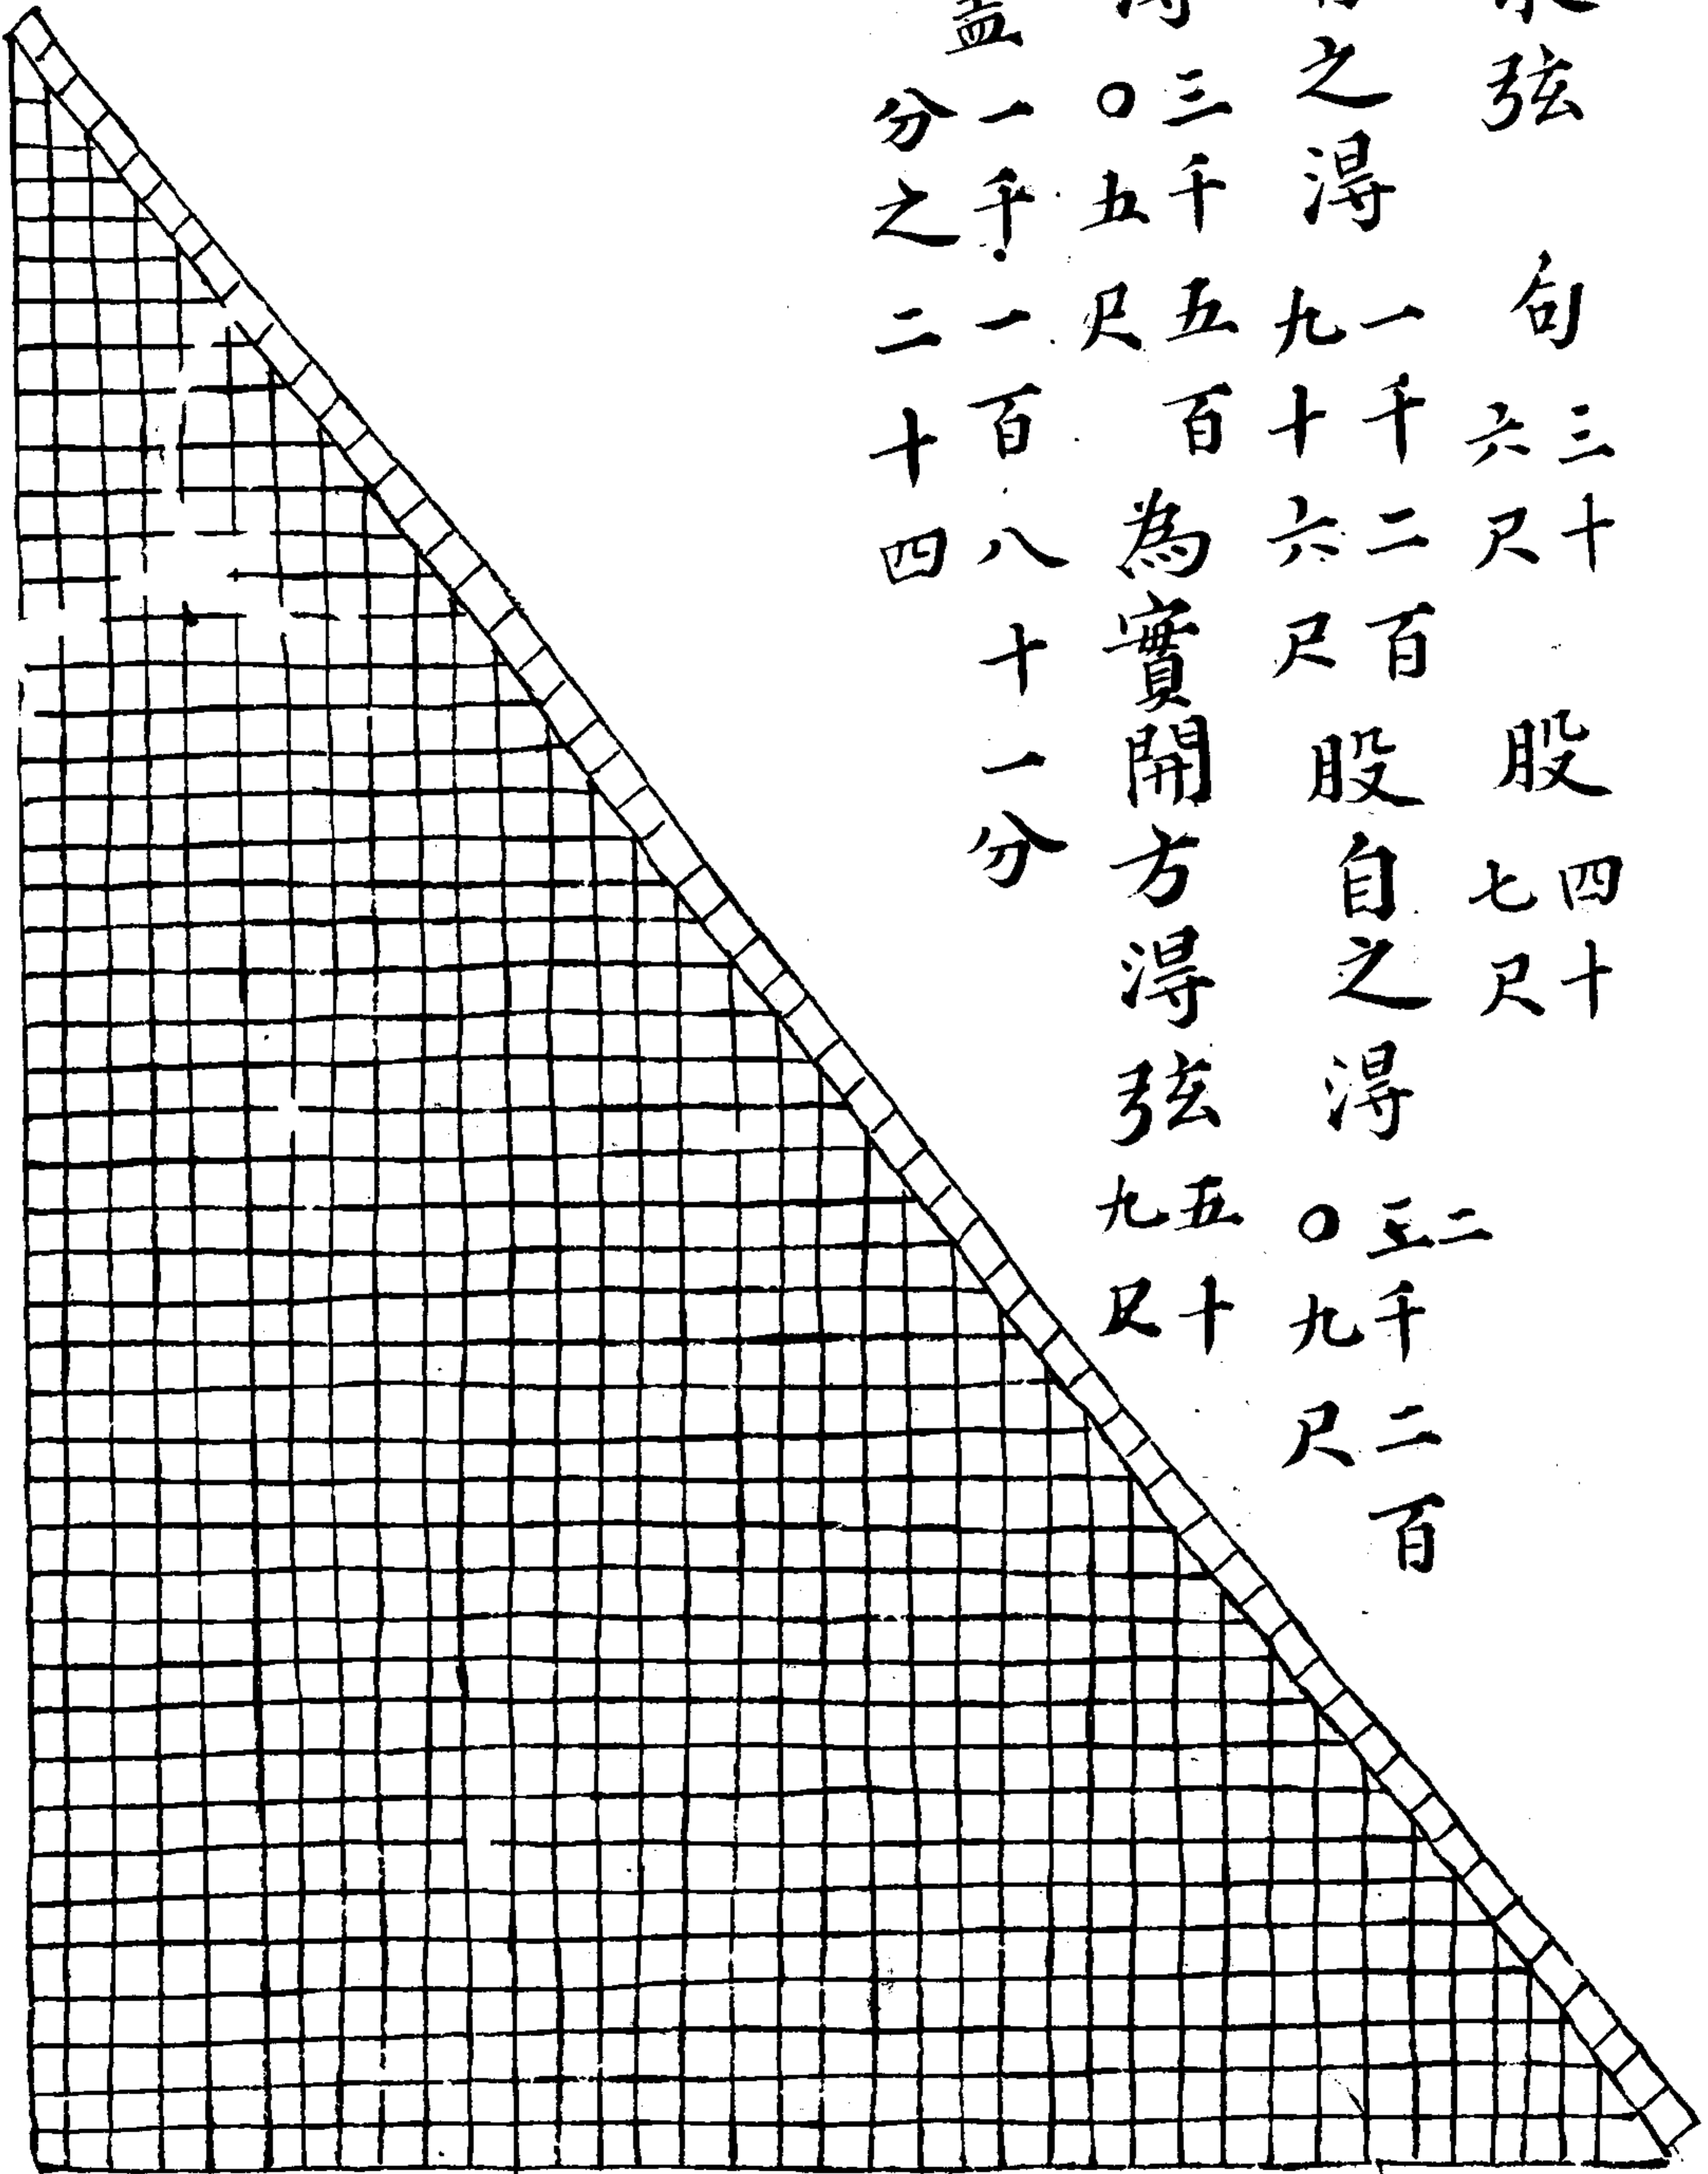 弦 句 三十六尺 股 四十七尺
之淂 一千二百九十六尺 股自之淂 二千二百〇九尺
三千五百〇五尺 為實開方淂弦 五十九尺
一千一百八十一分分之二十四